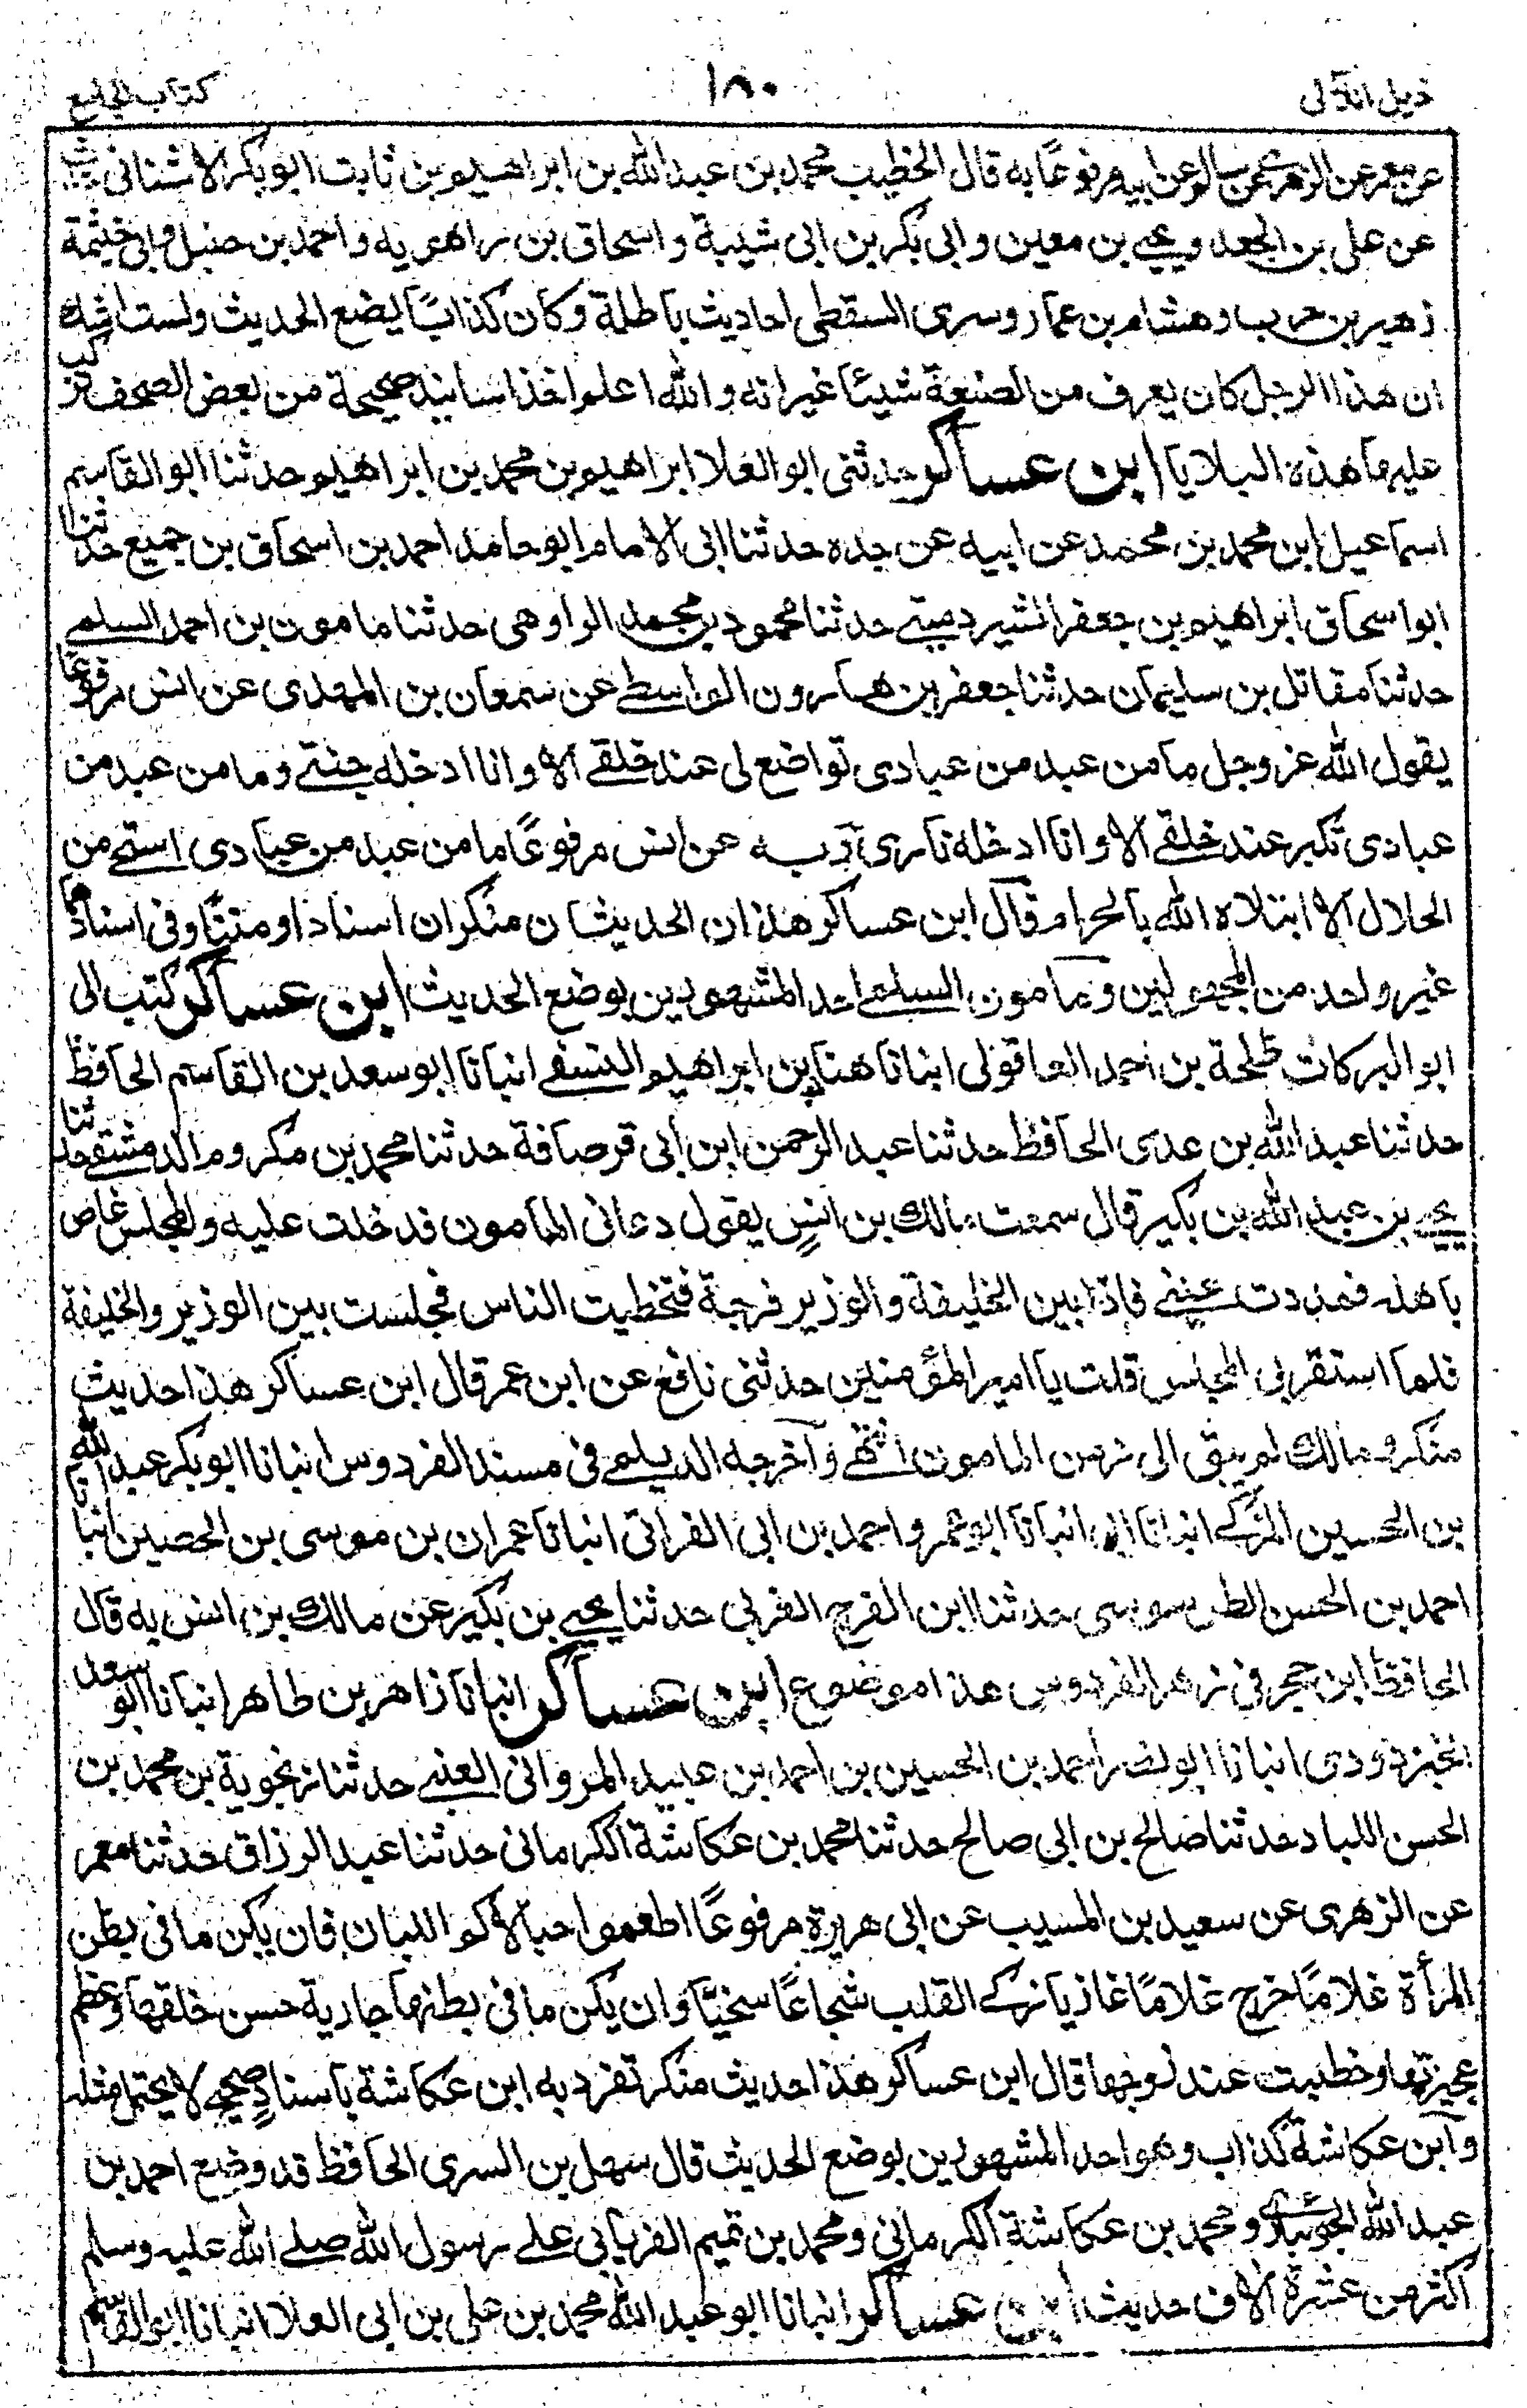 ذيل اللآلی
١٨٠
كتاب الجامع
عن معمر عن الزهری عن سالم عن ابيه مرفوعًا به قال الخطيب محمد بن عبد الله بن ابراهيم بن ثابت ابو بكر الاشنانی
عن علی بن الجعد ويحيے بن معين وابی بكر بن ابی شيبة واسحاق بن راهويه واحمد بن حنبل وابی خيثمة
زهير بن حرب وهشام بن عمار وسری السقطی احاديث باطلة وكان كذابًا يضع الحديث ولست اشك
ان هذا الرجل كان يعرف من الصنعة شيئًا غير انه والله اعلم اخذ اسانيد صحيحة من بعض الصحف فركب
عليها هذه البلايا ابن عساكر حدثنی ابو العلا ابراهيم بن محمد بن ابراهيم حدثنا ابو القاسم
اسماعيل ابن محمد بن محمد عن ابيه عن جده حدثنا ابی الامام ابو حامد احمد بن اسحاق بن جميع حدثنا
ابو اسحاق ابراهيم بن جعفر حدثنا محمود بن محمد الراوهی حدثنا مامون بن احمد السلمے
حدثنا مقاتل بن سليمان حدثنا جعفر بن هارون الواسطے عن سمعان بن المهدی عن انس مرفوعًا
يقول الله عز وجل ما من عبد من عبادی تواضع لی عند خلقے الا وانا ادخله جنتے وما من عبد من
عبادی تكبر عند خلقے الا وانا ادخله ناری وبه عن انس مرفوعًا ما من عبد من عبادی استحے من
الحلال الا ابتلاه الله بالحرام قال ابن عساكر هذان الحديثان منكران اسنادا ومتنًا وفی اسنادهما
غير واحد من المجهولين ومامون السلمے احد المشهورين بوضع الحديث ابن عساكر كتب الی
ابو البركات طلحة بن احمد العاقولی انبانا هناد بن ابراهيم النسفے انبانا ابو سعد بن القاسم الحافظ
حدثنا عبد الله بن عدی الحافظ حدثنا عبد الرحمن ابن ابی قرصافة حدثنا محمد بن مكروم الدمشقے حدثنا
يحيے بن عبد الله بن بكير قال سمعت مالك بن انس يقول دعانی المامون فدخلت عليه والمجلس غاص
باهله فمددت عينے فاذا بين الخليفة والوزير فرجة فتخطيت الناس فجلست بين الوزير والخليفة
فلما استقر بی المجلس قلت يا امير المؤمنين حدثنی نافع عن ابن عمر قال ابن عساكر هذا حديث
منكر ومالك لم يبق الی زمن المامون انتهے واخرجه الديلمے فی مسند الفردوس انبانا ابو بكر عبد الله
بن الحسين المزكے انبانا ابی انبانا ابو عمرو احمد بن ابی الفراتی انبانا عمران بن موسی بن الحصين انبانا
احمد بن الحسن الطرسوسی حدثنا ابن الفرج الغربی حدثنا يحيے بن بكير عن مالك بن انس به قال
الحافظ ابن حجر فی زهر الفردوس هذا موضوع ابن عساكر انبانا زاهر بن طاهر انبانا ابو سعد
الخبزرودی انبانا ابو نصر احمد بن الحسين بن احمد بن عبيد المروانی حدثنا زنجوية بن محمد بن
الحسن اللباد حدثنا صالح بن ابی صالح حدثنا محمد بن عكاشة الكرمانی حدثنا عبد الرزاق حدثنا معمر
عن الزهری عن سعيد بن المسيب عن ابی هريرة مرفوعًا اطعموا حبالاكم اللبان فان يكن ما فی بطن
المرأة غلامًا خرج غلامًا غازيا زكے القلب شجاعًا سخيًا وان يكن ما فی بطنها جارية حسن خلقها وعظم
عجيزتها وحظيت عند زوجها قال ابن عساكر هذا حديث منكر تفرد به ابن عكاشة باسناد صحيح لا يحتمل مثله
وابن عكاشة كذاب وهو احد المشهورين بوضع الحديث قال سهل بن السری الحافظ قد وضع احمد بن
عبد الله الجويباری ومحمد بن عكاشة الكرمانی ومحمد بن تميم الفريابی علے رسول الله صلے الله عليه وسلم
اكثر من عشرة الاف حديث ابن عساكر انبانا ابو عبد الله محمد بن علی بن ابی العلا انبانا ابو القاسم